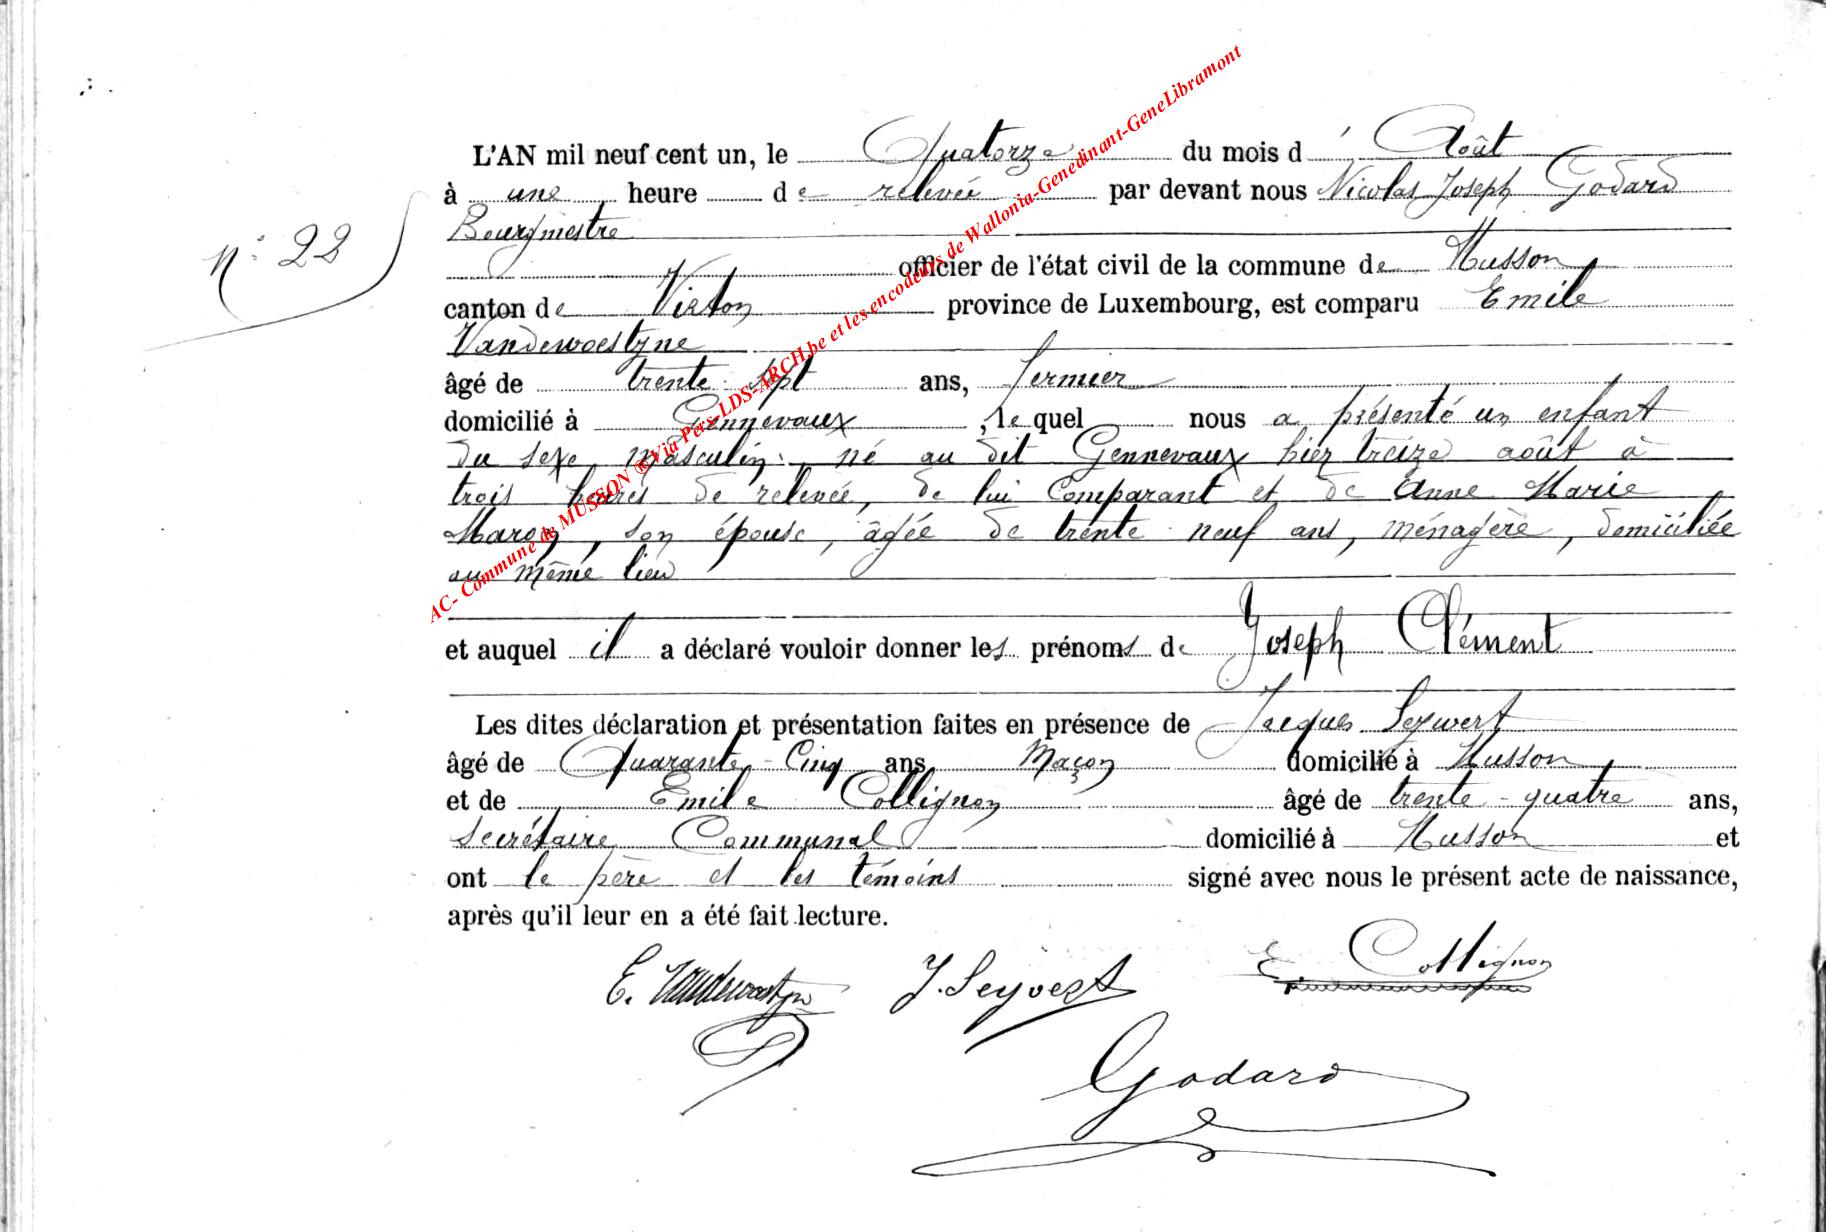 L'AN mil neuf cent un, le Quatorze du mois d' Août
à une heure de relevée par devant nous Nicolas Joseph Godard
Bourgmestre
n° 22
officier de l'état civil de la commune de Musson
canton de Virton province de Luxembourg, est comparu Emile
Vandewoestyne
âgé de trente sept ans, fermier
domicilié à Gennevaux, lequel nous a présenté un enfant
du sexe masculin, né au dit Gennevaux hier treize août à
trois heures de relevée, de lui Comparant et de Anne Marie
Maron, son épouse, âgée de trente neuf ans, ménagère, domiciliée
au même lieu
et auquel il a déclaré vouloir donner les prénoms de Joseph Clément
Les dites déclaration et présentation faites en présence de Jacques Seywert
âgé de Quarante-Cinq ans Maçon domicilié à Musson
et de Emile Collignon âgé de trente-quatre ans,
Secrétaire Communal domicilié à Musson et
ont le père et les témoins signé avec nous le présent acte de naissance,
après qu'il leur en a été fait lecture.
E. Vandewoestyne J. Seyvert E. Collignon
Godard
AC- Commune de MUSSON ®Via Pers-LDS-ARCH.be et les encodeurs de Wallonia-Genedinant-GeneLibramont